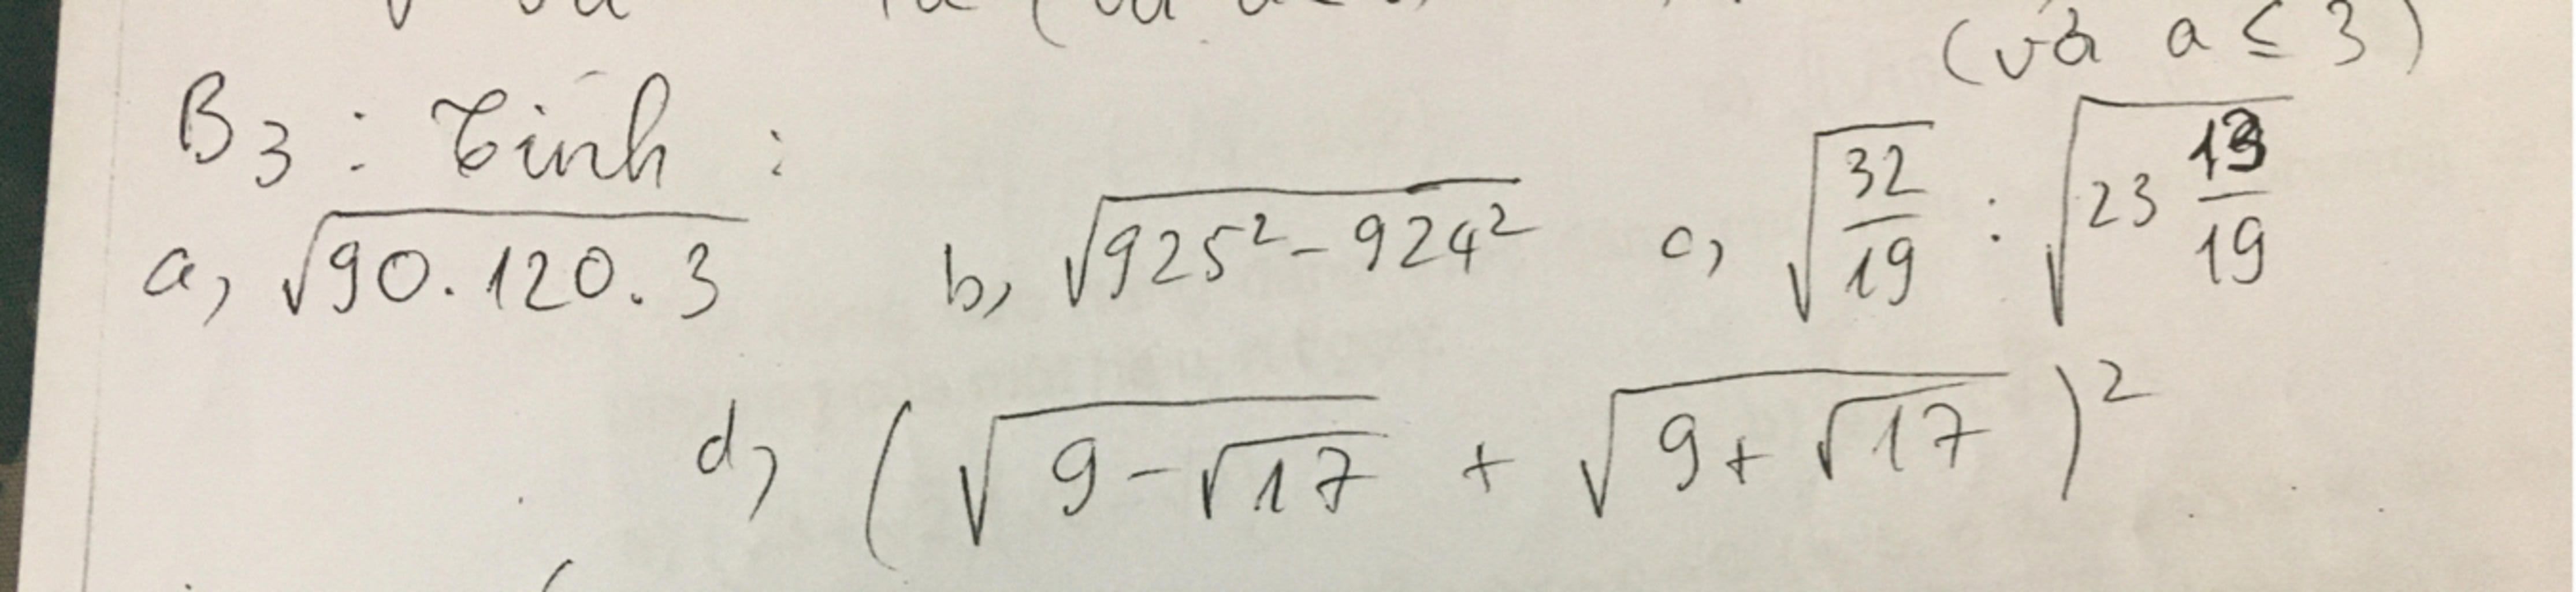 (với a ≤ 3)
B3: Tính:
a, √(90.120.3) b, √(925² - 924²) c, √(32/19) : √(23 13/19)
d, (√(9-√17) + √(9+√17))²